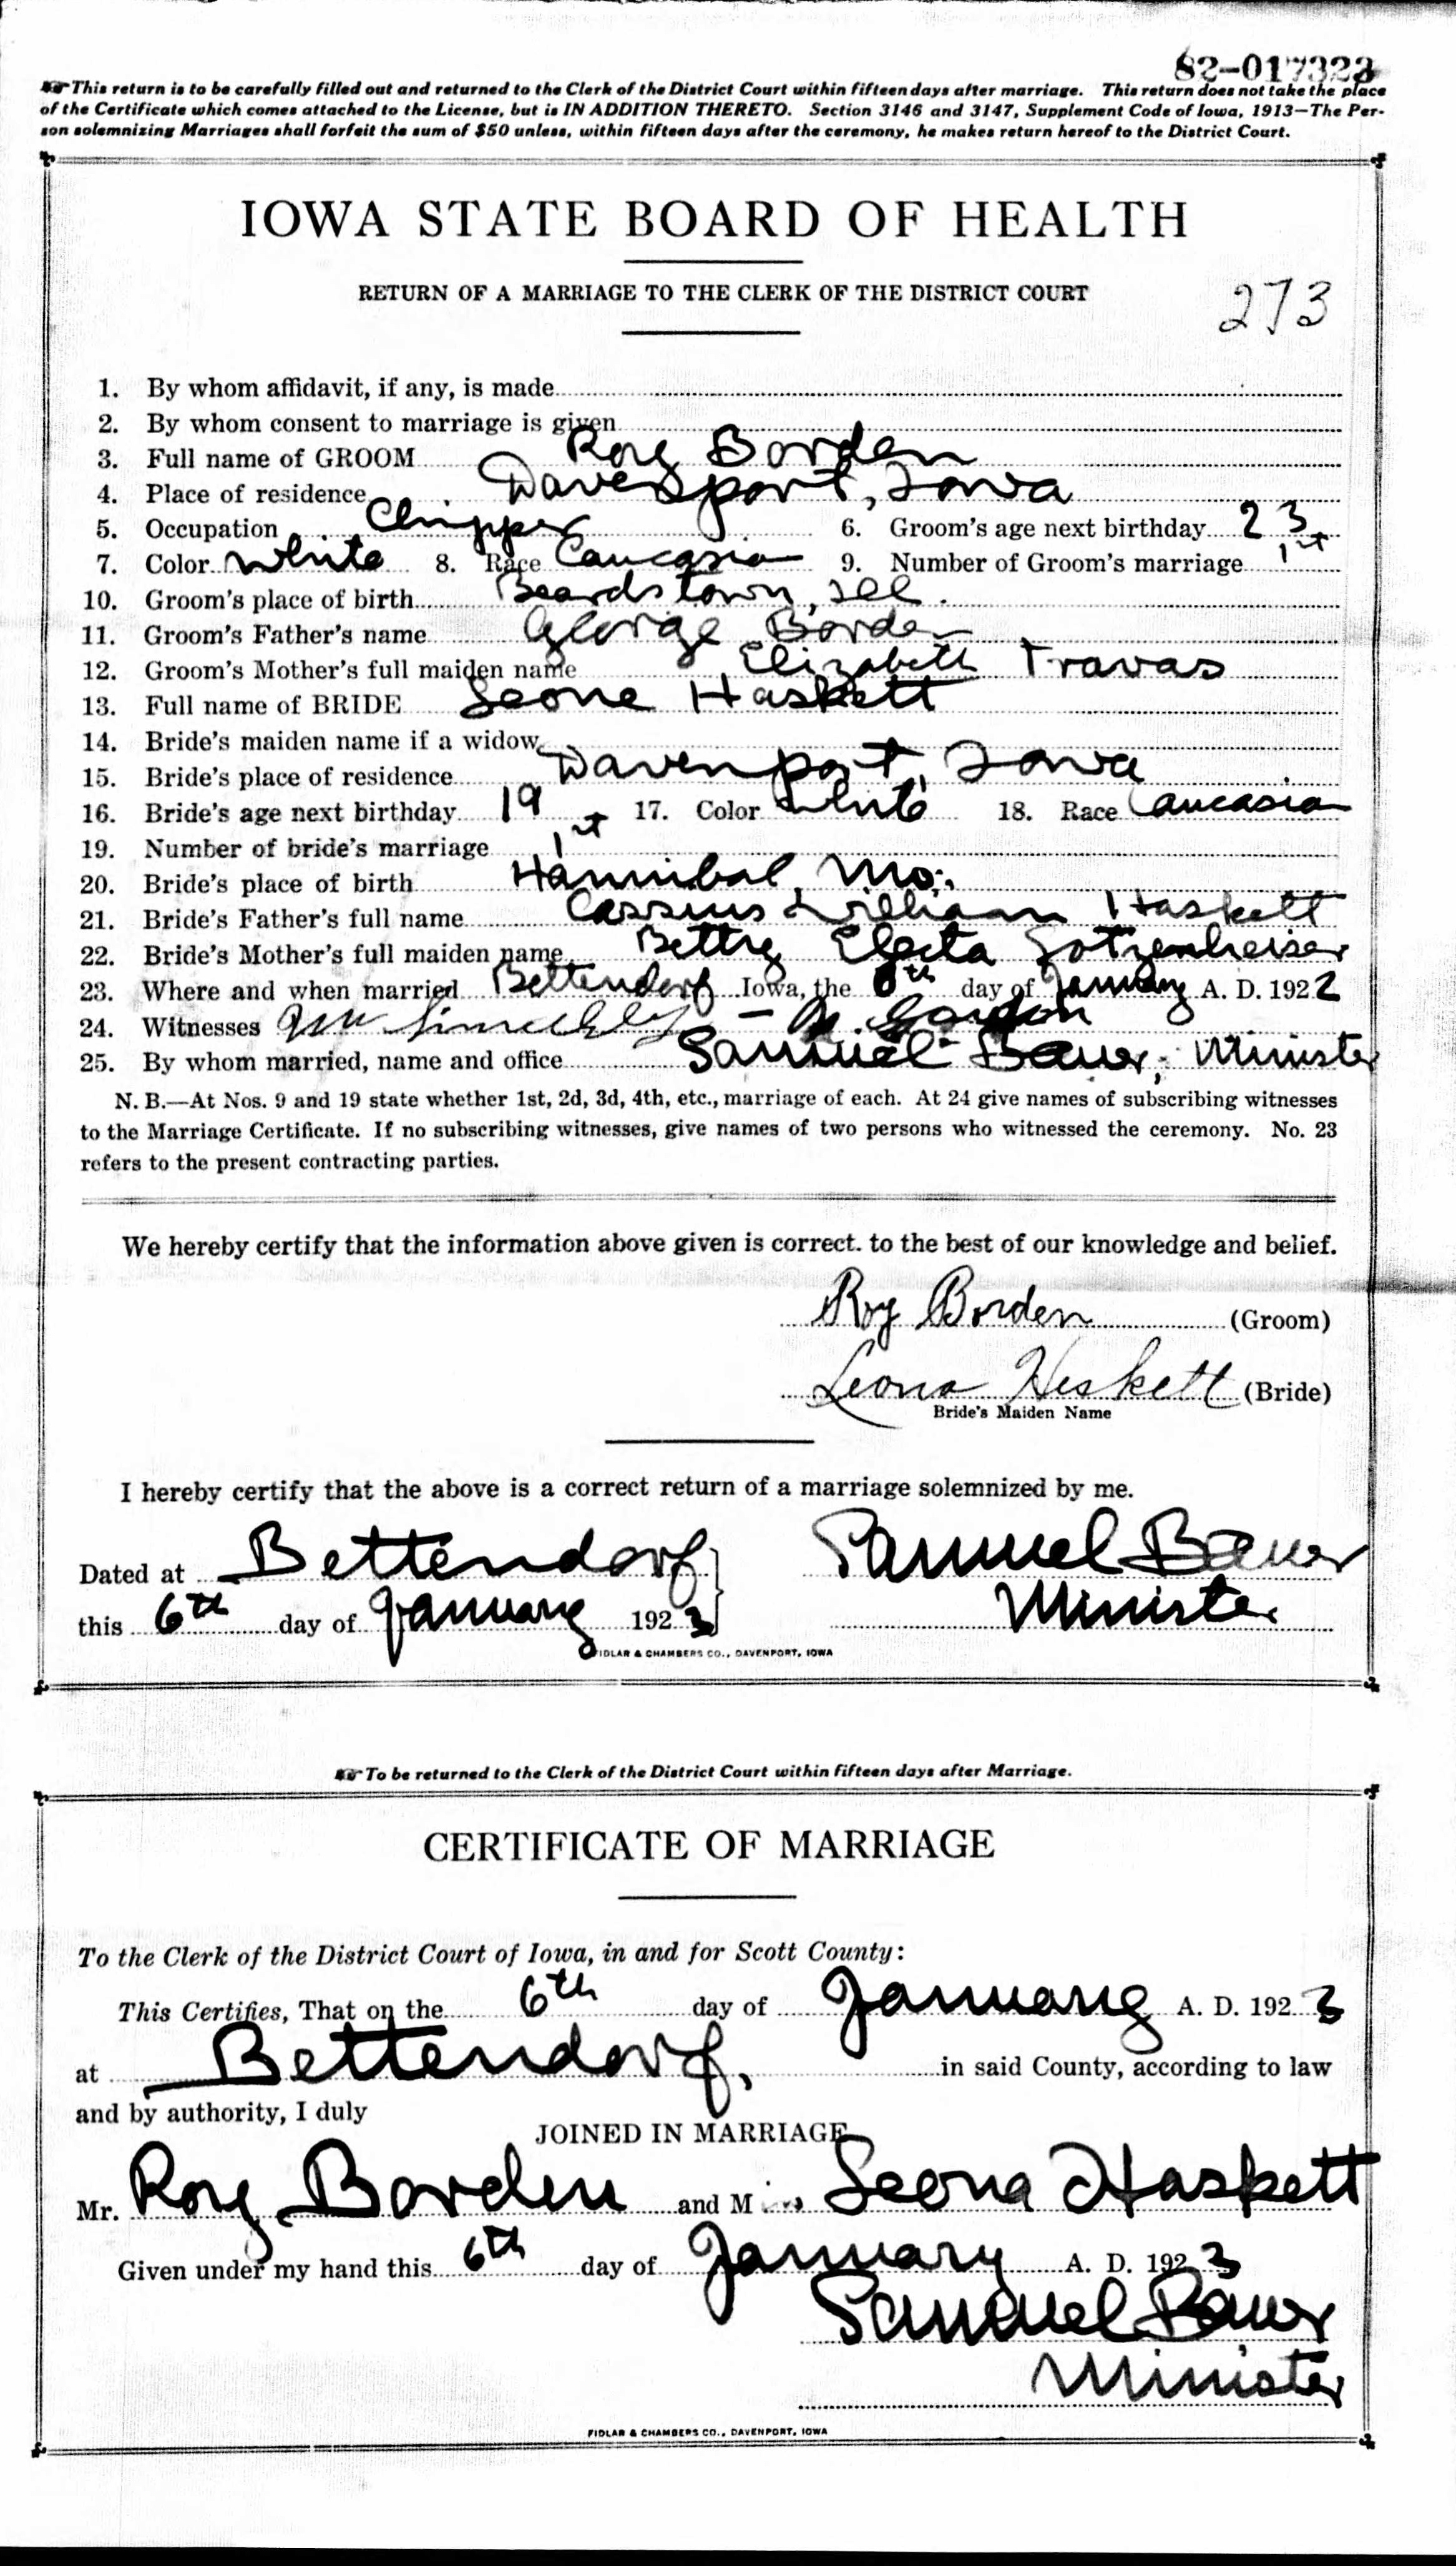 82-017323
This return is to be carefully filled out and returned to the Clerk of the District Court within fifteen days after marriage. This return does not take the place
of the Certificate which comes attached to the License, but is IN ADDITION THERETO. Section 3146 and 3147, Supplement Code of Iowa, 1913—The Per-
son solemnizing Marriages shall forfeit the sum of $50 unless, within fifteen days after the ceremony, he makes return hereof to the District Court.
IOWA STATE BOARD OF HEALTH
RETURN OF A MARRIAGE TO THE CLERK OF THE DISTRICT COURT
273
1. By whom affidavit, if any, is made
2. By whom consent to marriage is given
3. Full name of GROOM Roy Borden
4. Place of residence Davenport, Iowa
5. Occupation Chipper 6. Groom's age next birthday 23
7. Color White 8. Race Caucasia 9. Number of Groom's marriage 1st
10. Groom's place of birth Beardstown, Ill.
11. Groom's Father's name George Borden
12. Groom's Mother's full maiden name Elizabeth Travas
13. Full name of BRIDE Leone Haskett
14. Bride's maiden name if a widow
15. Bride's place of residence Davenport, Iowa
16. Bride's age next birthday 19 17. Color White 18. Race Caucasia
19. Number of bride's marriage 1st
20. Bride's place of birth Hannibal, Mo.
21. Bride's Father's full name Cassius William Haskett
22. Bride's Mother's full maiden name Betty Electa Gotzenheiser
23. Where and when married Bettendorf Iowa, the 6th day of January A. D. 1922
24. Witnesses Gordon
25. By whom married, name and office Samuel Bauer, Minister
N. B.—At Nos. 9 and 19 state whether 1st, 2d, 3d, 4th, etc., marriage of each. At 24 give names of subscribing witnesses
to the Marriage Certificate. If no subscribing witnesses, give names of two persons who witnessed the ceremony. No. 23
refers to the present contracting parties.
We hereby certify that the information above given is correct. to the best of our knowledge and belief.
Roy Borden (Groom)
Leona Heskett (Bride)
Bride's Maiden Name
I hereby certify that the above is a correct return of a marriage solemnized by me.
Dated at Bettendorf Samuel Bauer
this 6th day of January 1923 Minister
FIDLAR & CHAMBERS CO., DAVENPORT, IOWA
To be returned to the Clerk of the District Court within fifteen days after Marriage.
CERTIFICATE OF MARRIAGE
To the Clerk of the District Court of Iowa, in and for Scott County:
This Certifies, That on the 6th day of January A. D. 1923
at Bettendorf, in said County, according to law
and by authority, I duly
JOINED IN MARRIAGE
Mr. Roy Borden and Miss Leona Haskett
Given under my hand this 6th day of January A. D. 1923
Samuel Bauer
Minister
FIDLAR & CHAMBERS CO., DAVENPORT, IOWA